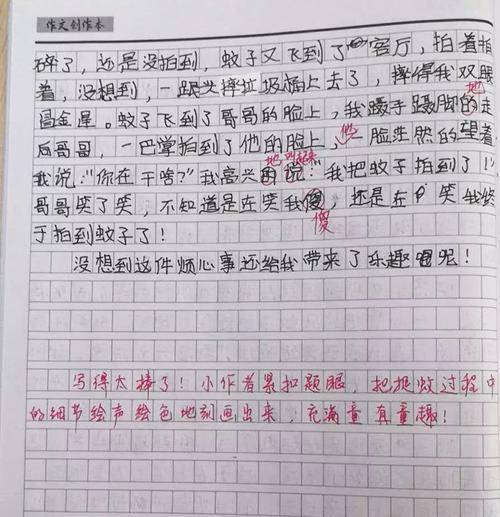 作文创作本
碎了,还是没拍到,蚊子又飞到了客厅,拍着拍
着,没想到,一跟头摔垃圾桶上去了,摔得我双眼
冒金星。蚊子飞到了哥哥的脸上,我蹑手蹑脚的地走
向哥哥,一巴掌拍到了他的脸上,他一脸茫然的望着
我说:“你在干啥?”我高兴地叫起来说:“我把蚊子拍到了!”
哥哥笑了笑,不知道是在笑我傻傻,还是在笑我终
于拍到蚊子了!
没想到这件烦心事还给我带来了乐趣呢!
写得太棒了!小作者紧扣题眼,把捉蚊过程中
的细节绘声绘色地刻画出来,充满童真童趣!